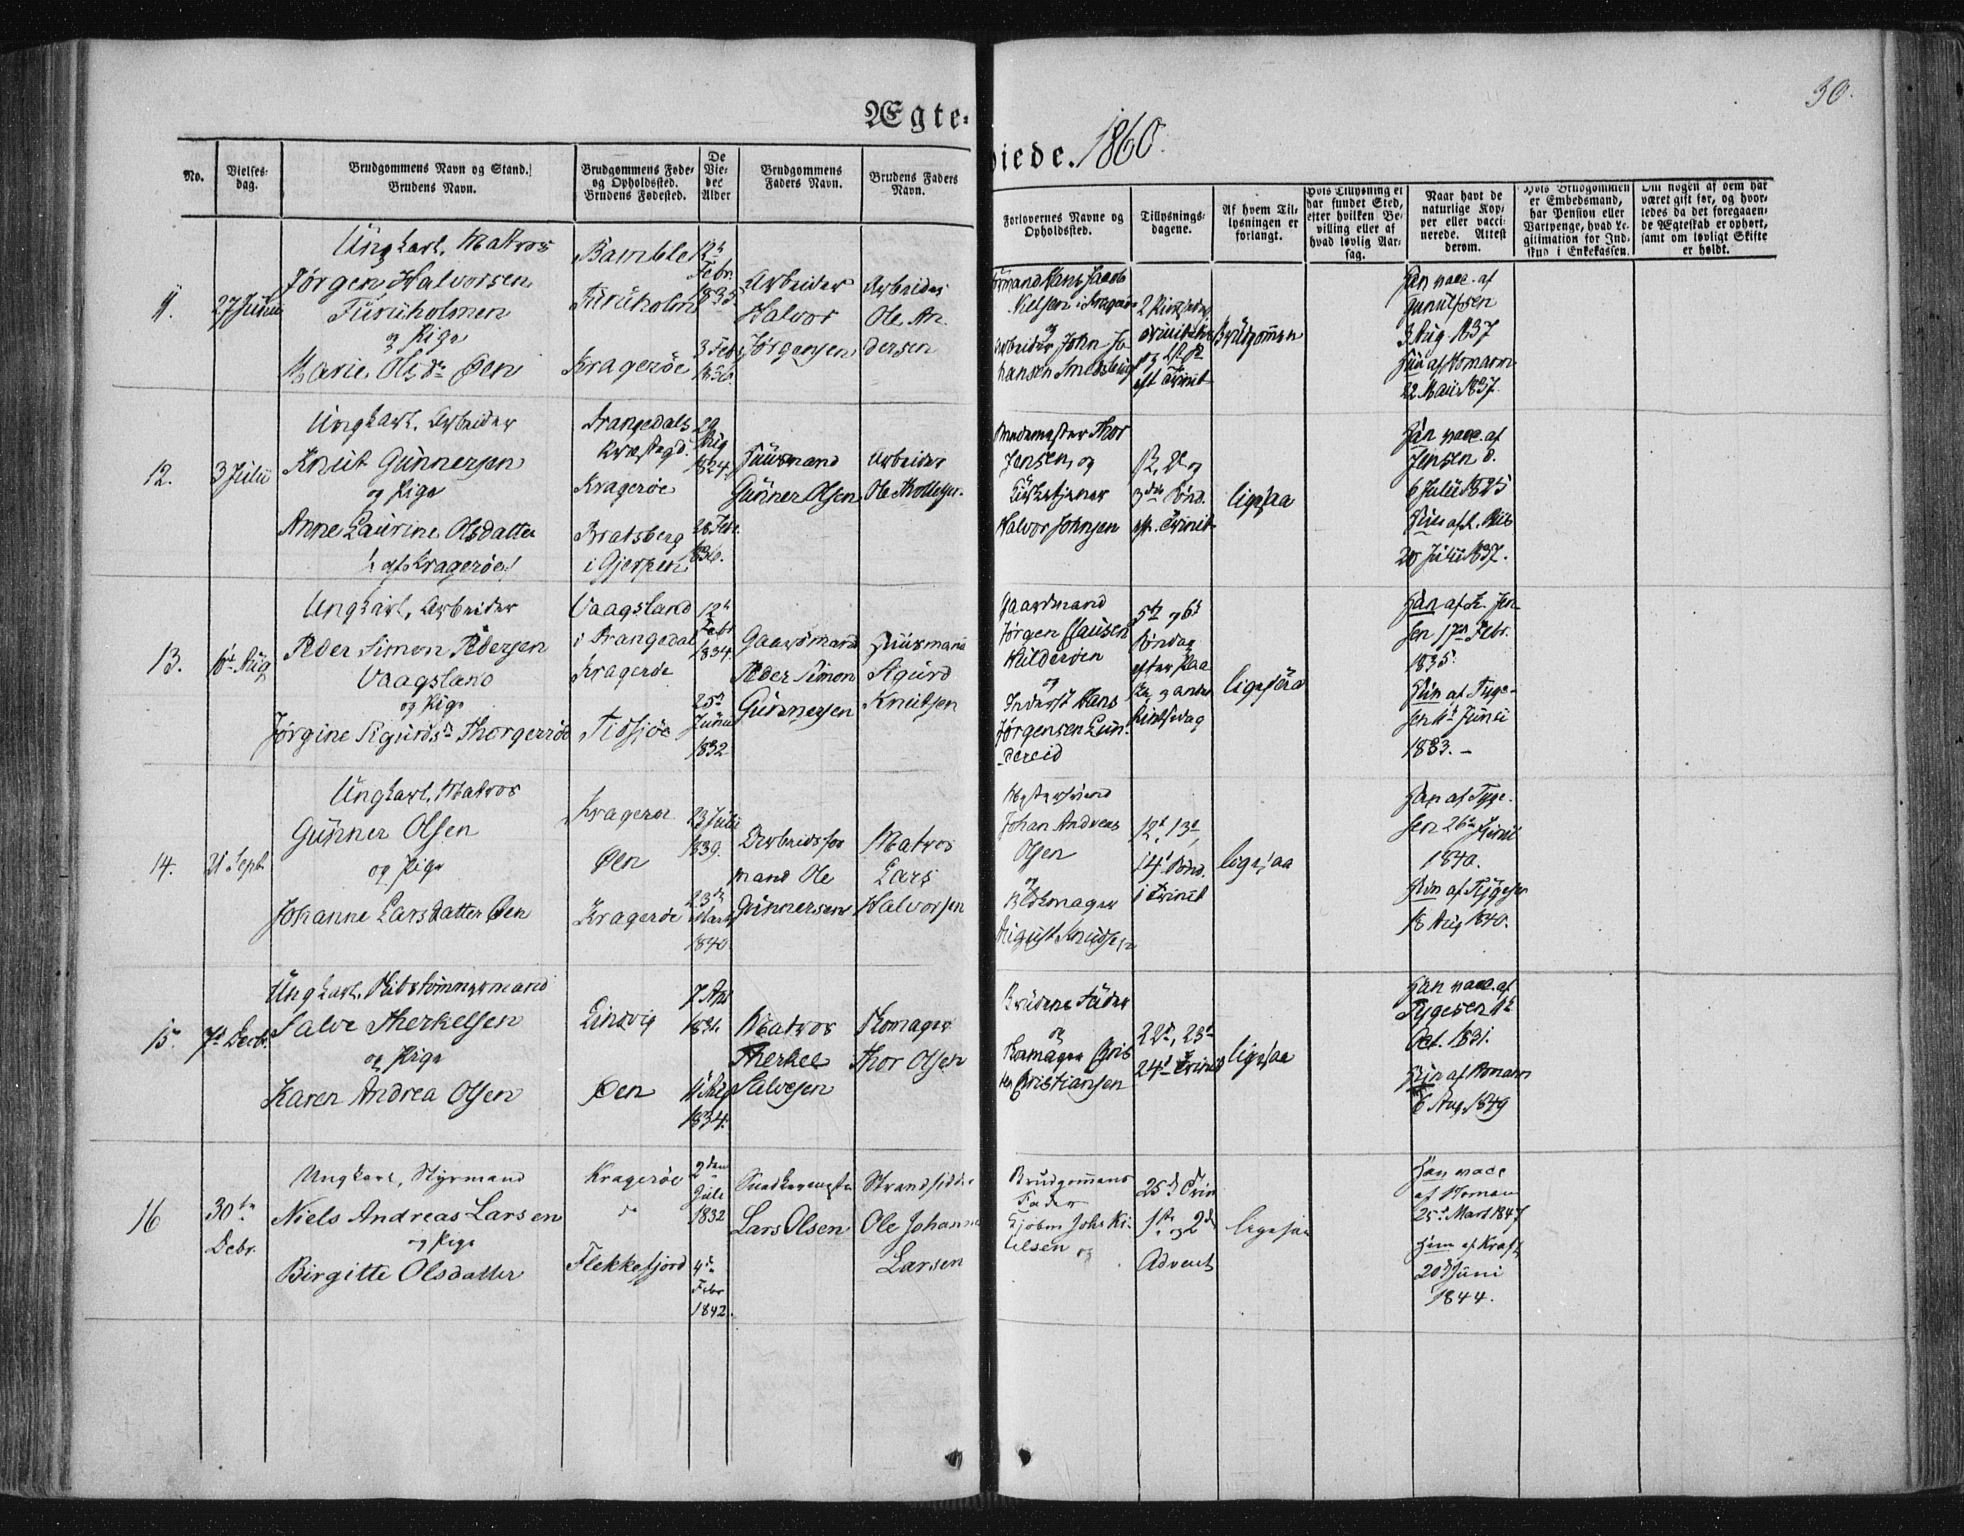 Ægte-
viede. 1860.
30.
No.
Vielses-
dag.
Brudgommens Navn og Stand.
Brudens Navn.
Brudgommens Føde-
og Opholdssted.
Brudens Fødested.
De
Vie-
des
Alder
Brudgommens
Faders Navn.
Brudens Faders
Navn.
Forlovernes Navne og
Opholdssted.
Tillysnings-
dagene.
Af hvem Til-
lysningen er
forlangt.
Hvis Tillysning ei
har fundet Sted,
efter hvilken Be-
villing eller af
hvad lovlig Aar-
sag.
Naar havt de
naturlige Kop-
per eller vacci-
nerede. Attest
derom.
Hvis Brudgommen
er Embedsmand,
har Pension eller
Vartpenge, hvad Le-
gitimation for Ind-
skud i Enkekassen.
Om nogen af dem har
været gift før, og hvor-
ledes da det foregaaen-
de Ægteskab er ophørt,
samt om lovligt Skifte
er holdt.
11.
27 Juni
Ungkarl, Matros
Jørgen Halvorsen
Furuholmen
og Pige
Marie Olsdr Øen
Bamble
Furuholm
Kragerøe
12te
Febr.
1835
3 Feb.
1836.
Arbeider
Halvor
Jørgensen
Arbeider
Ole An-
dersen
Formand Hans Jacob
Nielsen i Kragerøe
og
Arbeider John Jo-
hansen
og
eft Trinit
Brudgommen
Han vacc. af
Gunulfsen
3 Aug 1837
Hun af Homann
22 Mai 1837.
12.
3 Julii
Ungkarl, Arbeider
Knut Gunnersen
og Pige
Anne Laurine Olsdatter
/: af Kragerøe :/
Drangedals
Præstegd.
Kragerøe
Bratsberg
i Gjerpen
29
Aug
1824.
28 Febr.
1836.
Huusmand
Gunner Olsen
Arbeider
Thor
Jensen, og
Kirketjener
Halvor Johnsen
1ste, 2de og
3die Sønd.
eft. Trinit
ligesaa
Han vacc. af
Jensen d.
6 Julii 1825
Hun af
20 Julii 1837.
13.
16de Aug
Ungkarl, Arbeider
Peder Simon Pedersen
Vaagsland
og Pige
Jørgine Sigurdsdr Thorgersøe
Vaagsland
i Drangedal
Kragerøe
12te
Febr
1834.
25de
Junii
1832
Gaardmand
Peder Simon
Gunnersen
Huusmand
Sigurd
Knutsen
Gaardmand
Jørgen Clausen
og
Inderst Hans
Jørgensen Lun-
dereid
5te og 6te
Søndag
efter Paa-
ske og anden
Pintsedag
ligesaa
Han af L. Jen-
sen 17de Febr.
1835.
Hun af Tyge-
sen Junii
1833. –
14.
21 Sept.
Ungkarl, Matros
Gunner Olsen
og Pige
Johanne Larsdatter Øen
Kragerøe
Øen
Kragerøe
23 Julii
1839.
23de
Marts
1840.
Arbeidsfor-
mand Ole
Gunnersen
Matros
Lars
Halvorsen
Johan Andreas
Olsen
og
Blokmager
August Knudsen
12te, 13de,
14de Sønd.
i Trinit
ligesaa
Han af Tyge-
sen 26de Junii
1840.
Hun af Tygesen
18 Aug 1840.
15.
7de Decbr.
Ungkarl, Skibstømmermand
Salve Therkelsen
og Pige
Karen Andrea Olsen
Lindvig
Øen
7 Apr
1831.
1834.
Matros
Therkel
Salvesen
Skomager
Thor Olsen
Brudens Fader
og
Skomager Chris-
ten Christiansen
22de, 23de
24de Trinit
ligesaa
Han vacc. af
Tygesen
Oct. 1831.
Hun af Homann
6 Aug 1849
16
30te
Debr.
Ungkarl, Styrmand
Niels Andreas Larsen
og Pige
Birgitte Olsdatter
Kragerøe
do
Flekkefjord
2den
Juli
1832
4de
Febr
1842.
Snedkermester
Lars Olsen
Strandsidder
Ole Johannes
Larsen
Brudgommens
Fader
og
25de Trin
1ste og 2de
Advent
ligesaa
Han vacc
af Homan
25de Mart 1847
Hun af Kraft
20de Juni
1844.